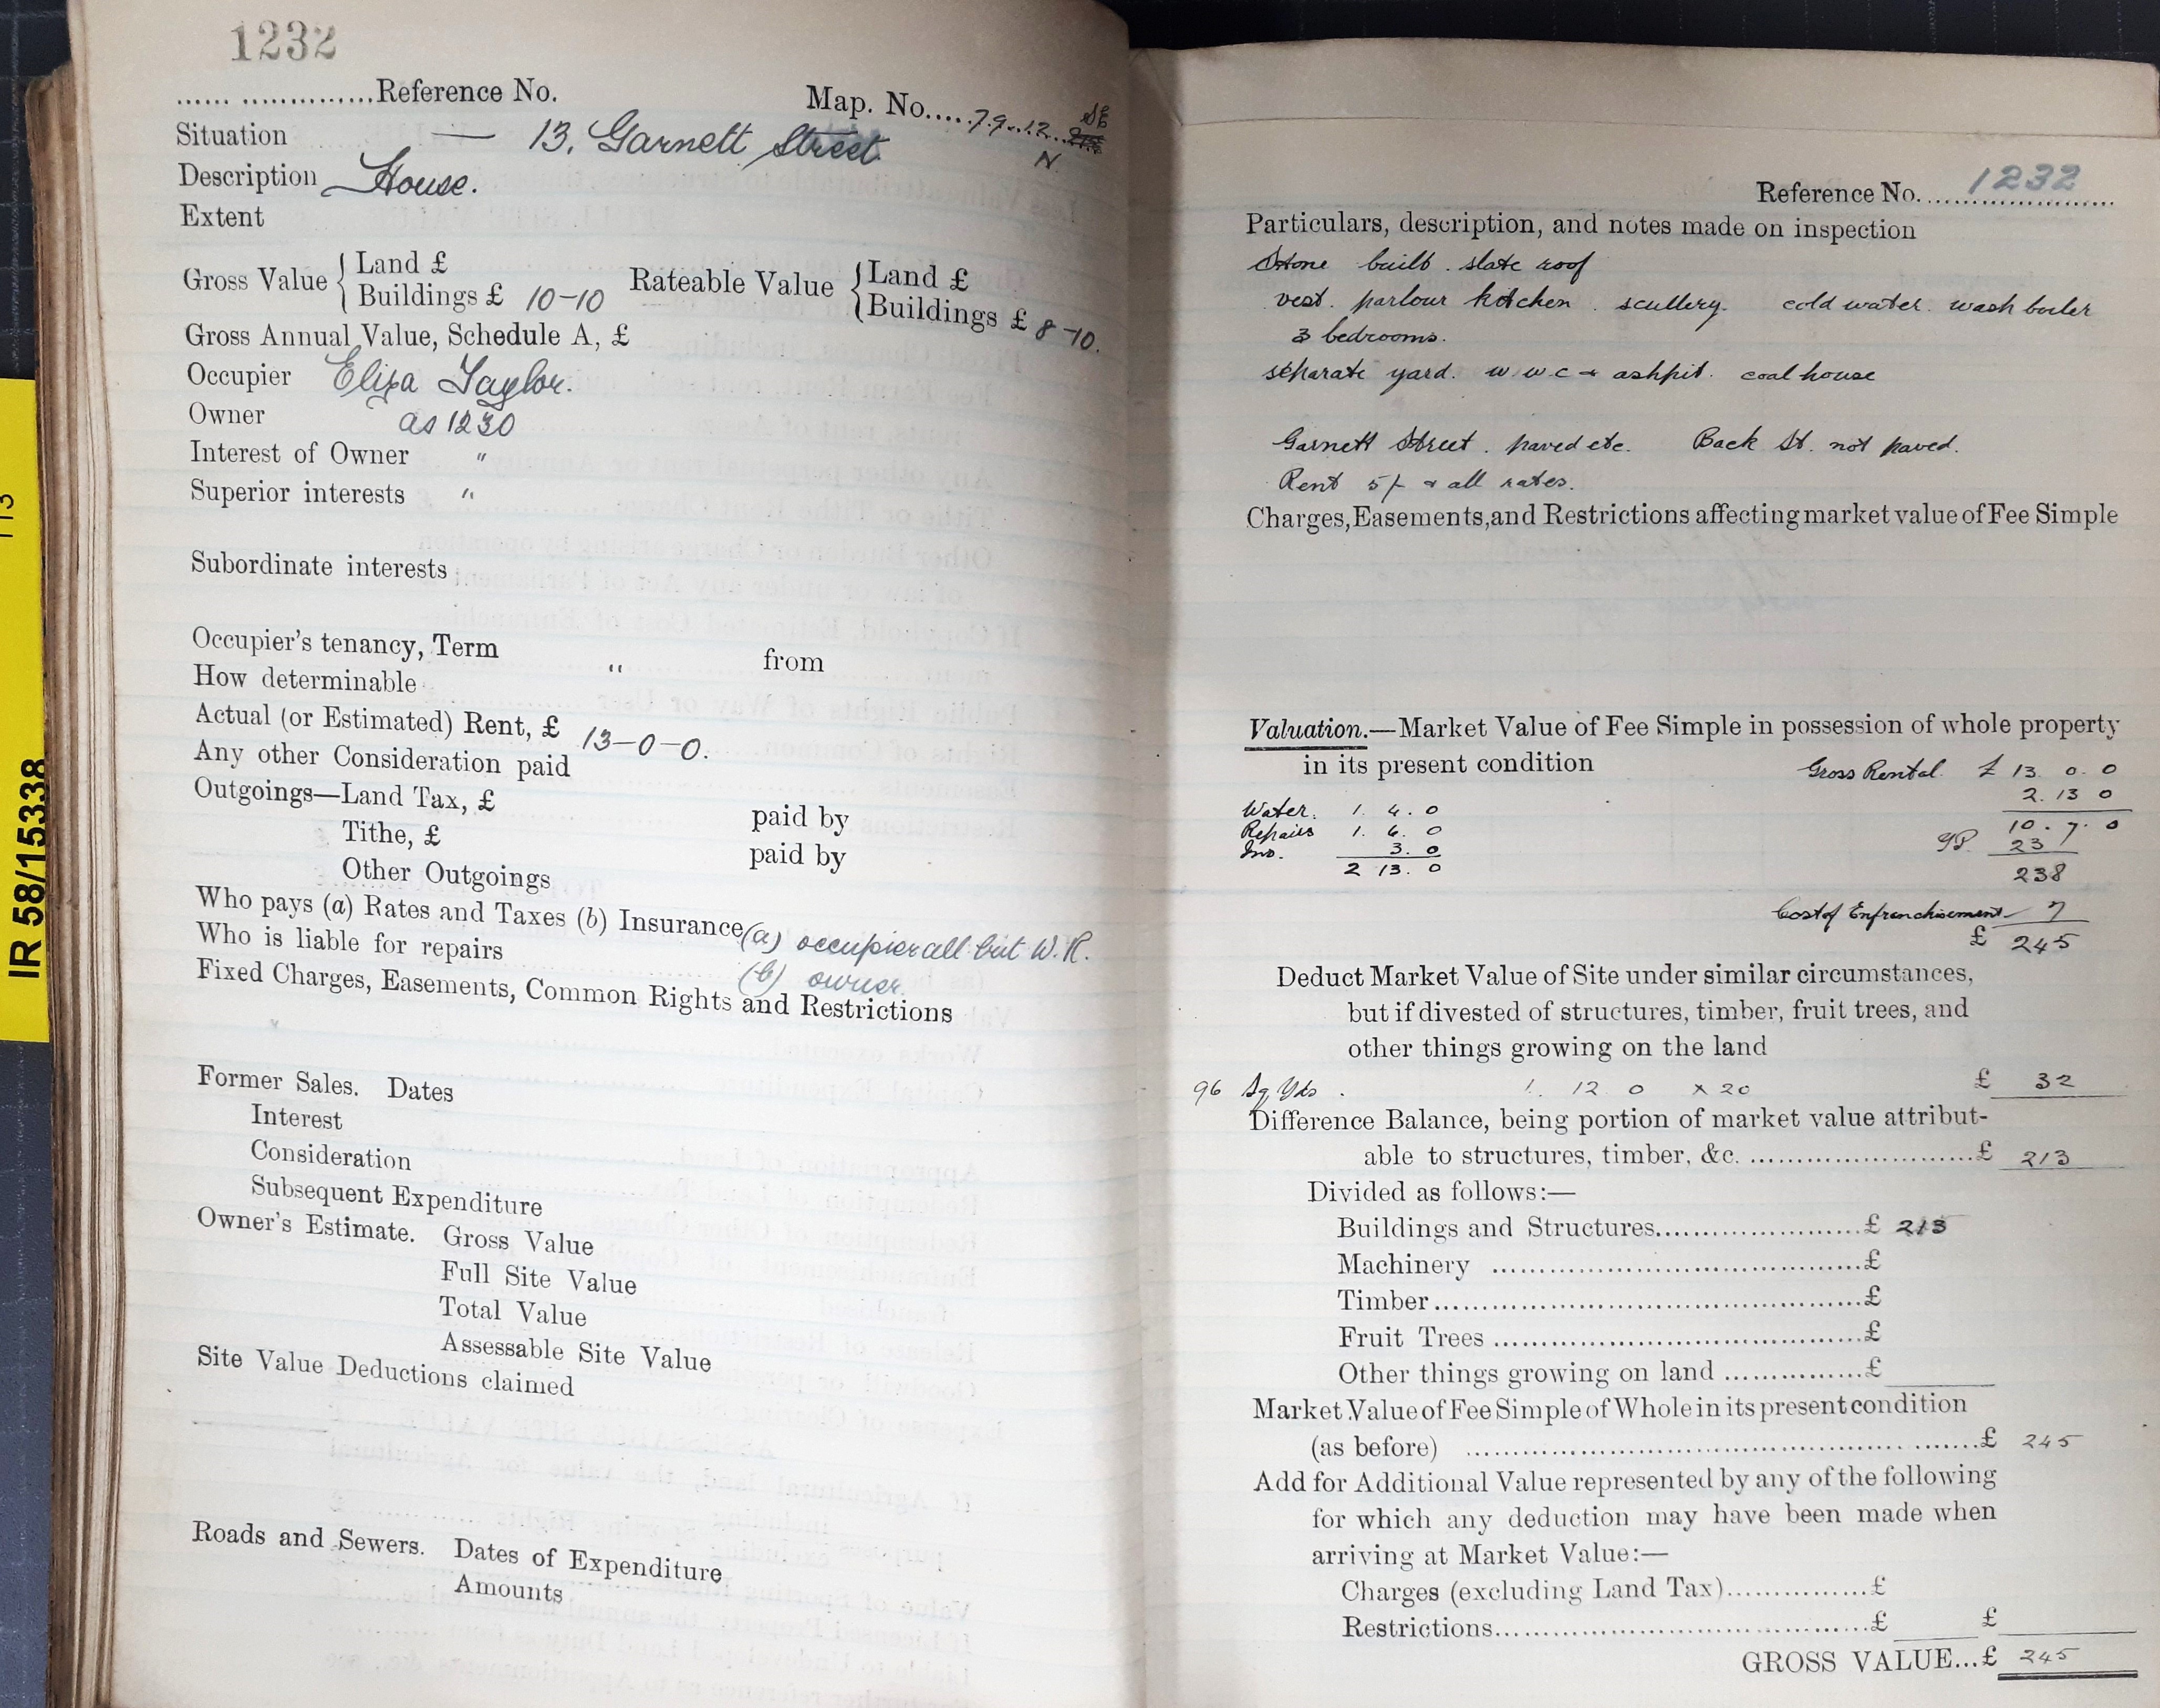 1232
...... ...............Reference No.
Map. No.....79.12 SE
N
Situation — 13, Garnett Street.
Description House.
Extent
Gross Value { Land £
Buildings £ 10-10
Rateable Value { Land £
Buildings £ 8-10.
Gross Annual Value, Schedule A, £
Occupier Eliza Taylor.
Owner as 1230
Interest of Owner "
Superior interests "
Subordinate interests
Occupier's tenancy, Term " from
How determinable
Actual (or Estimated) Rent, £ 13-0-0.
Any other Consideration paid
Outgoings—Land Tax, £ paid by
Tithe, £ paid by
Other Outgoings
Who pays (a) Rates and Taxes (b) Insurance (a) occupier all but W.R.
Who is liable for repairs (b) owner.
Fixed Charges, Easements, Common Rights and Restrictions
Former Sales. Dates
Interest
Consideration
Subsequent Expenditure
Owner's Estimate. Gross Value
Full Site Value
Total Value
Assessable Site Value
Site Value Deductions claimed
Roads and Sewers. Dates of Expenditure
Amounts
IR 58/15338
113
Reference No. 1232
Particulars, description, and notes made on inspection
Stone built. slate roof
vest. parlour kitchen. scullery. cold water. wash boiler
3 bedrooms.
separate yard. w.w.c & ashpit. coal house
Garnett Street. paved etc. Back St. not paved.
Rent 5/- & all rates.
Charges, Easements, and Restrictions affecting market value of Fee Simple
Valuation.—Market Value of Fee Simple in possession of whole property
in its present condition
Gross Rental. £ 13. 0. 0
2. 13 0
10. 7. 0
YP. 23
238
Water. 1. 4. 0
Repairs 1. 6. 0
Ins. 3. 0
2 13. 0
Cost of Enfranchisement 7
£ 245
Deduct Market Value of Site under similar circumstances,
but if divested of structures, timber, fruit trees, and
other things growing on the land
96 Sq Yds. 1. 12 0 x 20 £ 32
Difference Balance, being portion of market value attribut-
able to structures, timber, &c. ........................£ 213
Divided as follows:—
Buildings and Structures......................£ 213
Machinery .......................................£
Timber.............................................£
Fruit Trees .......................................£
Other things growing on land ..............£
Market Value of Fee Simple of Whole in its present condition
(as before) ......................................................£ 245
Add for Additional Value represented by any of the following
for which any deduction may have been made when
arriving at Market Value:—
Charges (excluding Land Tax)...............£
Restrictions.......................................£ £
GROSS VALUE...£ 245